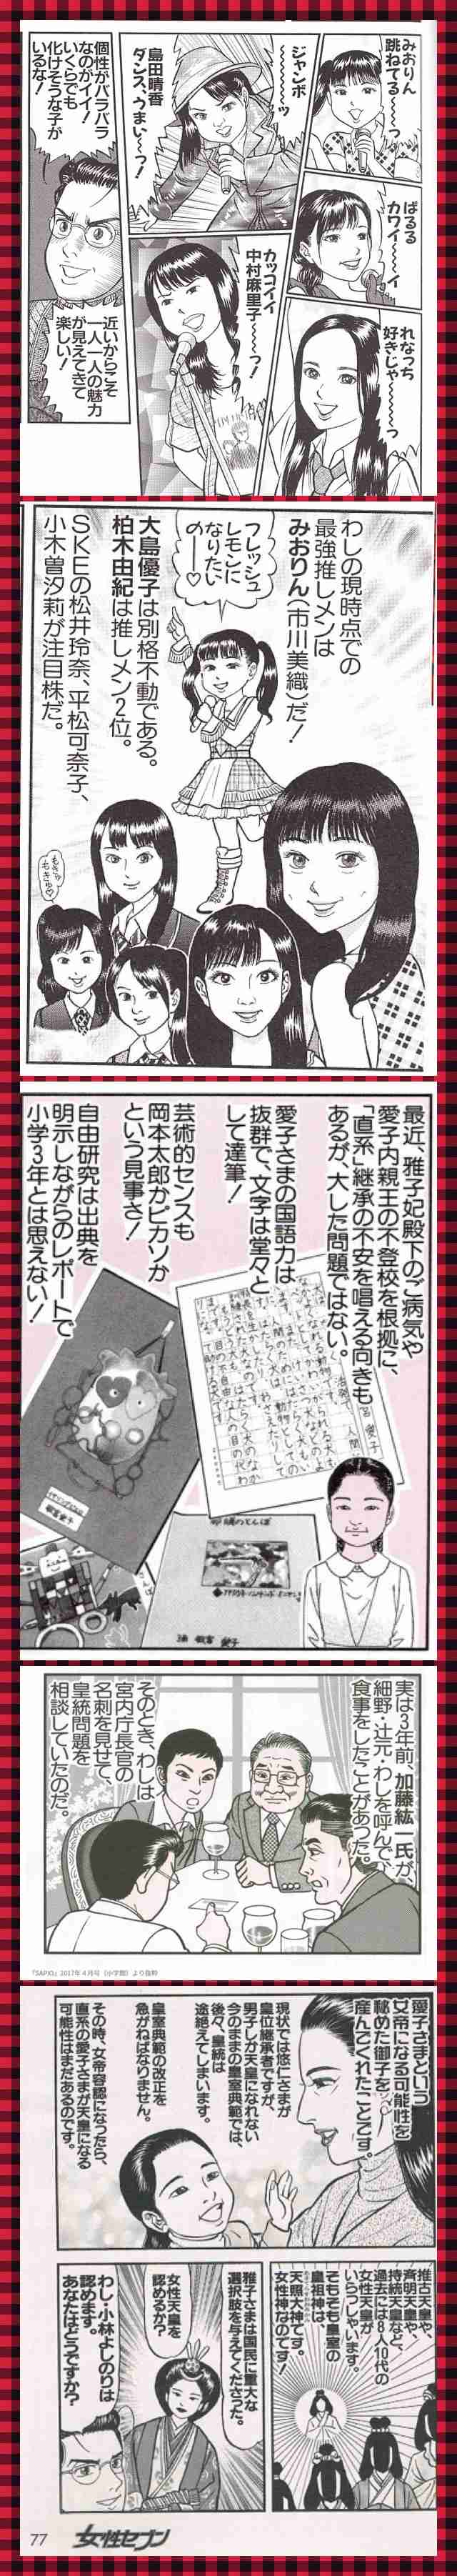 みおりん
跳ねてる〜〜っ
ぱるる
カワイ〜〜イ
れなっち
好きじゃ〜〜〜っ
ジャンボ
〜〜〜〜ッ
島田晴香
ダンス、うまい〜っ!
カッコイイ
中村麻里子〜〜〜っ!
個性がバラバラ
なのがイイ!
いくらでも
化けそうな子が
いるな!
近いからこそ
一人一人の魅力
が見えてきて
楽しい!
わしの現時点での
最強推しメンは
みおりん(市川美織)だ!
フレッシュ
レモンに
なりたい
の――♡
大島優子は別格不動である。
柏木由紀は推しメン2位。
SKEの松井玲奈、平松可奈子、
小木曽汐莉が注目株だ。
もきゅ
もきゅ♡
最近、雅子妃殿下のご病気や
愛子内親王の不登校を根拠に、
「直系」継承の不安を唱える向きも
あるが、大した問題ではない。
愛子さまの国語力は
抜群で、文字は堂々と
して達筆!
芸術的センスも
岡本太郎かピカソか
という見事さ!
自由研究は出典を
明示しながらのレポートで
小学3年とは思えない!
実は3年前、加藤紘一氏が、
細野・辻元・わしを呼んで、
食事をしたことがあった。
そのとき、わしは
宮内庁長官の
名刺を見せて、
皇統問題を
相談していたのだ。
『SAPIO』2017年4月号(小学館)より抜粋
愛子さまという
女帝になる可能性を
秘めた御子を
産んでくれたことです。
現状では悠仁さまが
皇位継承者ですが、
男子しか天皇になれない
今のままの皇室典範では、
後々、皇統は
途絶えてしまいます。
皇室典範の改正を
急がねばなりません。
その時、女帝容認になったら、
直系の愛子さまが天皇になる
可能性はまだあるのです。
推古天皇や、
斉明天皇や、
持統天皇など、
過去には8人10代の
女性天皇が
いらっしゃいます。
そもそも皇室の
皇祖神は、
天照大神です。
女性神なのです!
雅子さまは国民に重大な
選択肢を与えてくださった。
女性天皇を
認めるか?
わし・小林よしのりは
認めます。
あなたはどうですか?
77 女性セブン